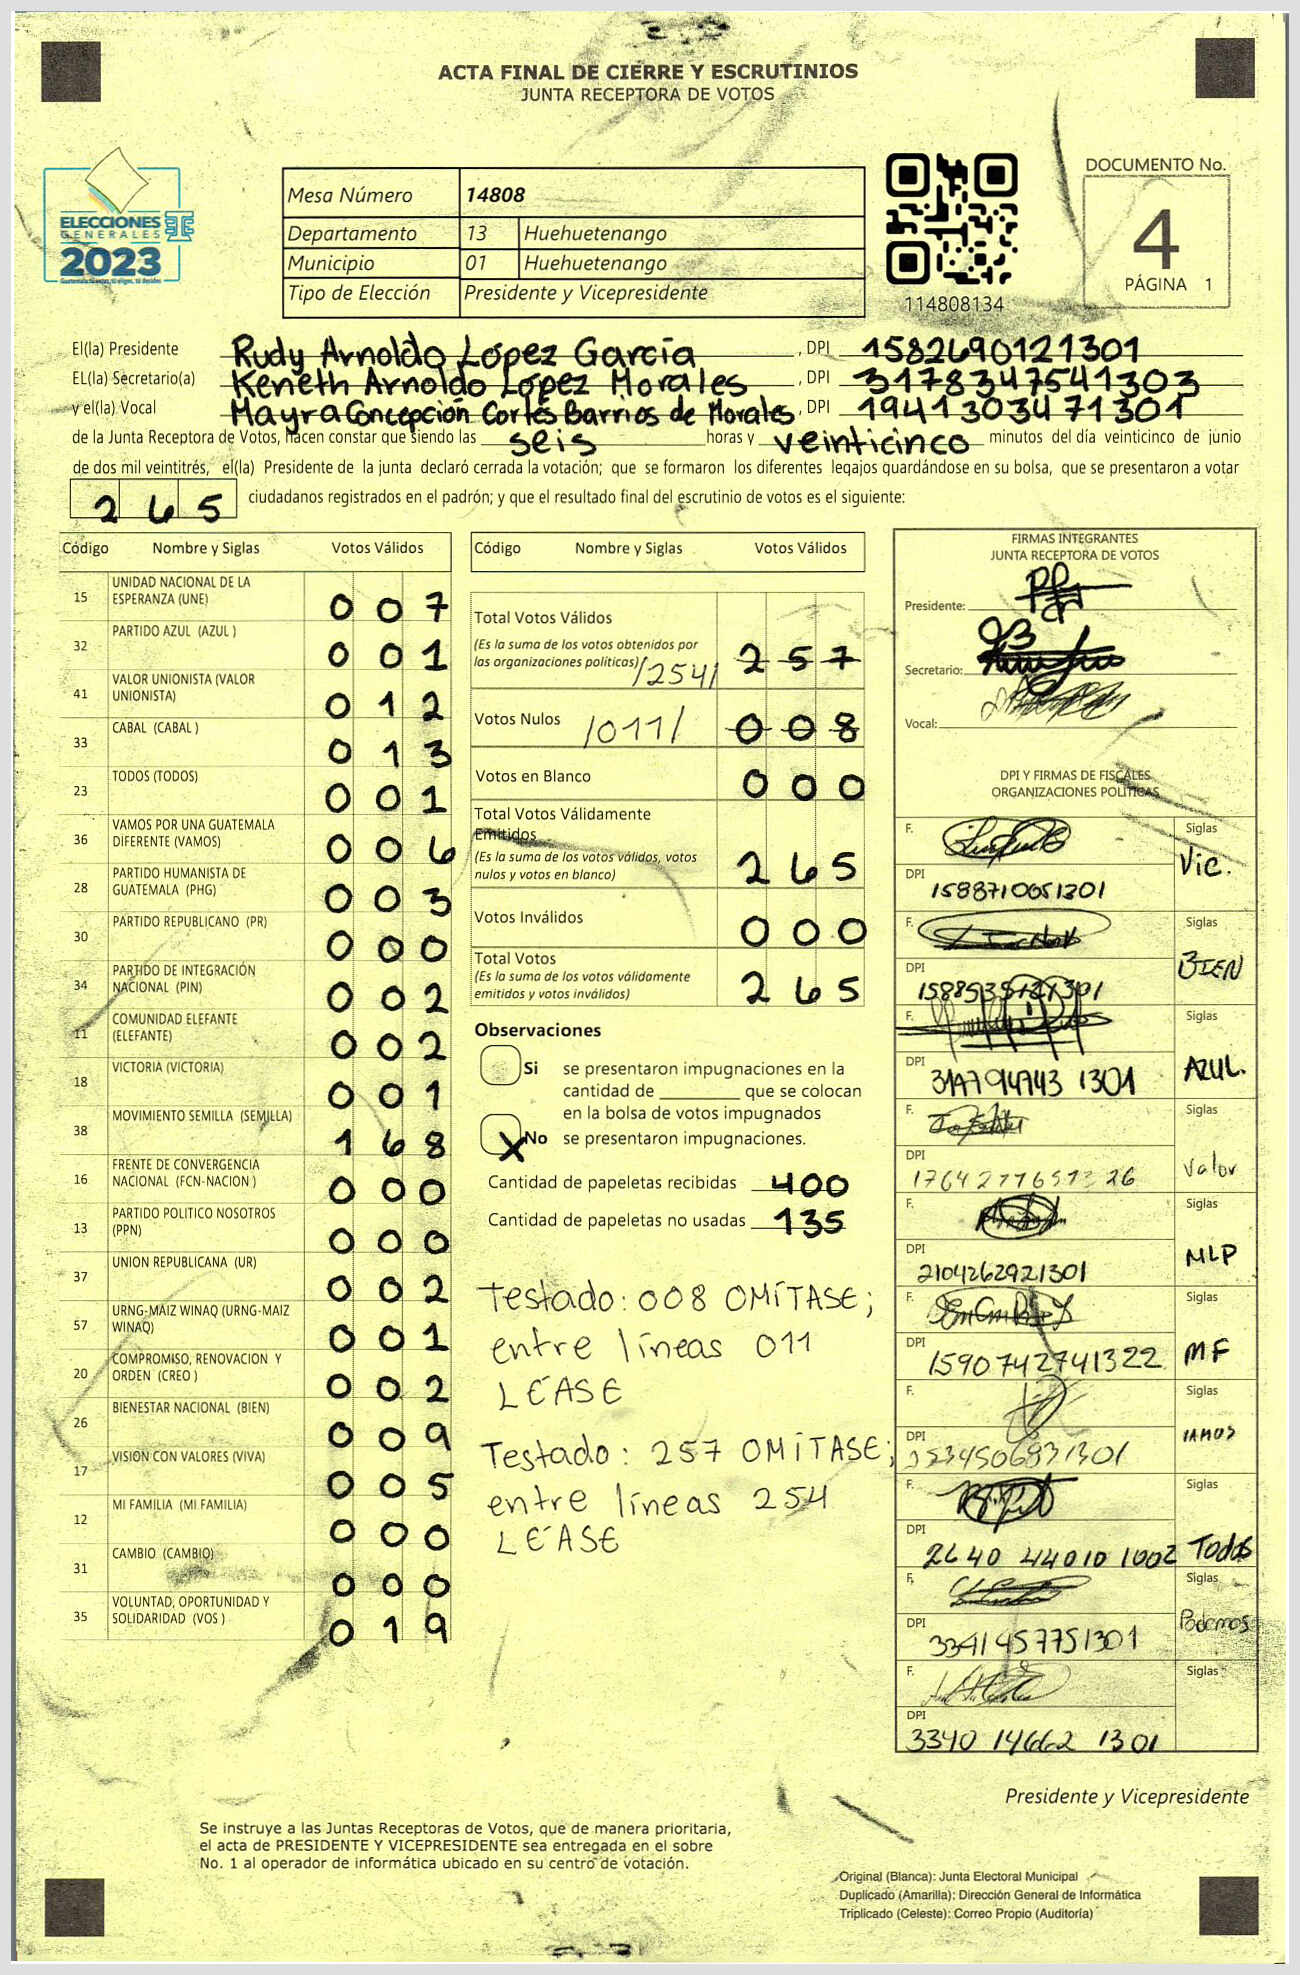 ACTA FINAL DE CIERRE Y ESCRUTINIOS
JUNTA RECEPTORA DE VOTOS
ELECCIONES
GENERALES
2023
Mesa Número 14808
Departamento 13 Huehuetenango
Municipio 01 Huehuetenango
Tipo de Elección Presidente y Vicepresidente
114808134
DOCUMENTO No.
4
PÁGINA 1
El(la) Presidente Rudy Arnoldo López García, DPI 1582690121301
EL(la) Secretario(a) Keneth Arnoldo López Morales, DPI 3178347541303
y el(la) Vocal Mayra Concepción Cortés Barrios de Morales, DPI 1941303471301
de la Junta Receptora de Votos, hacen constar que siendo las seis horas y veinticinco minutos del día veinticinco de junio
de dos mil veintitrés, el(la) Presidente de la junta declaró cerrada la votación; que se formaron los diferentes legajos quardándose en su bolsa, que se presentaron a votar
265 ciudadanos registrados en el padrón; y que el resultado final del escrutinio de votos es el siguiente:
Código Nombre y Siglas Votos Válidos
15 UNIDAD NACIONAL DE LA ESPERANZA (UNE) 007
32 PARTIDO AZUL (AZUL ) 001
41 VALOR UNIONISTA (VALOR UNIONISTA) 012
33 CABAL (CABAL ) 013
23 TODOS (TODOS) 001
36 VAMOS POR UNA GUATEMALA DIFERENTE (VAMOS) 006
28 PARTIDO HUMANISTA DE GUATEMALA (PHG) 003
30 PARTIDO REPUBLICANO (PR) 000
34 PARTIDO DE INTEGRACIÓN NACIONAL (PIN) 002
11 COMUNIDAD ELEFANTE (ELEFANTE) 002
18 VICTORIA (VICTORIA) 001
38 MOVIMIENTO SEMILLA (SEMILLA) 168
16 FRENTE DE CONVERGENCIA NACIONAL (FCN-NACION ) 000
13 PARTIDO POLITICO NOSOTROS (PPN) 000
37 UNION REPUBLICANA (UR) 002
57 URNG-MAIZ WINAQ (URNG-MAIZ WINAQ) 001
20 COMPROMISO, RENOVACION Y ORDEN (CREO ) 002
26 BIENESTAR NACIONAL (BIEN) 009
17 VISION CON VALORES (VIVA) 005
12 MI FAMILIA (MI FAMILIA) 000
31 CAMBIO (CAMBIO) 000
35 VOLUNTAD, OPORTUNIDAD Y SOLIDARIDAD (VOS ) 019
Código Nombre y Siglas Votos Válidos
Total Votos Válidos
(Es la suma de los votos obtenidos por
las organizaciones políticas) /254/ 257
Votos Nulos /011/ 008
Votos en Blanco 000
Total Votos Válidamente
Emitidos
(Es la suma de los votos válidos, votos
nulos y votos en blanco) 265
Votos Inválidos 000
Total Votos
(Es la suma de los votos válidamente
emitidos y votos inválidos) 265
Observaciones
Si se presentaron impugnaciones en la
cantidad de ________ que se colocan
en la bolsa de votos impugnados
X No se presentaron impugnaciones.
Cantidad de papeletas recibidas 400
Cantidad de papeletas no usadas 135
Testado: 008 OMÍTASE;
entre líneas 011
LÉASE
Testado: 257 OMÍTASE;
entre líneas 254
LÉASE
FIRMAS INTEGRANTES
JUNTA RECEPTORA DE VOTOS
Presidente:
Secretario:
Vocal:
DPI Y FIRMAS DE FISCALES
ORGANIZACIONES POLÍTICAS
F. Siglas Vic.
DPI 1588710051301
F. Siglas BIEN
DPI
F. Siglas AZUL.
DPI
F. Siglas Valor
DPI
F. Siglas MLP
DPI 2104262921301
F. Siglas MF
DPI 1590742741322
F. Siglas
DPI
F. Siglas Todos
DPI 2640 44010 1002
F. Siglas Podemos
DPI 3341457751301
F. Siglas
DPI 3340 14662 1301
Presidente y Vicepresidente
Se instruye a las Juntas Receptoras de Votos, que de manera prioritaria,
el acta de PRESIDENTE Y VICEPRESIDENTE sea entregada en el sobre
No. 1 al operador de informática ubicado en su centro de votación.
Original (Blanca): Junta Electoral Municipal
Duplicado (Amarilla): Dirección General de Informática
Triplicado (Celeste): Correo Propio (Auditoría)